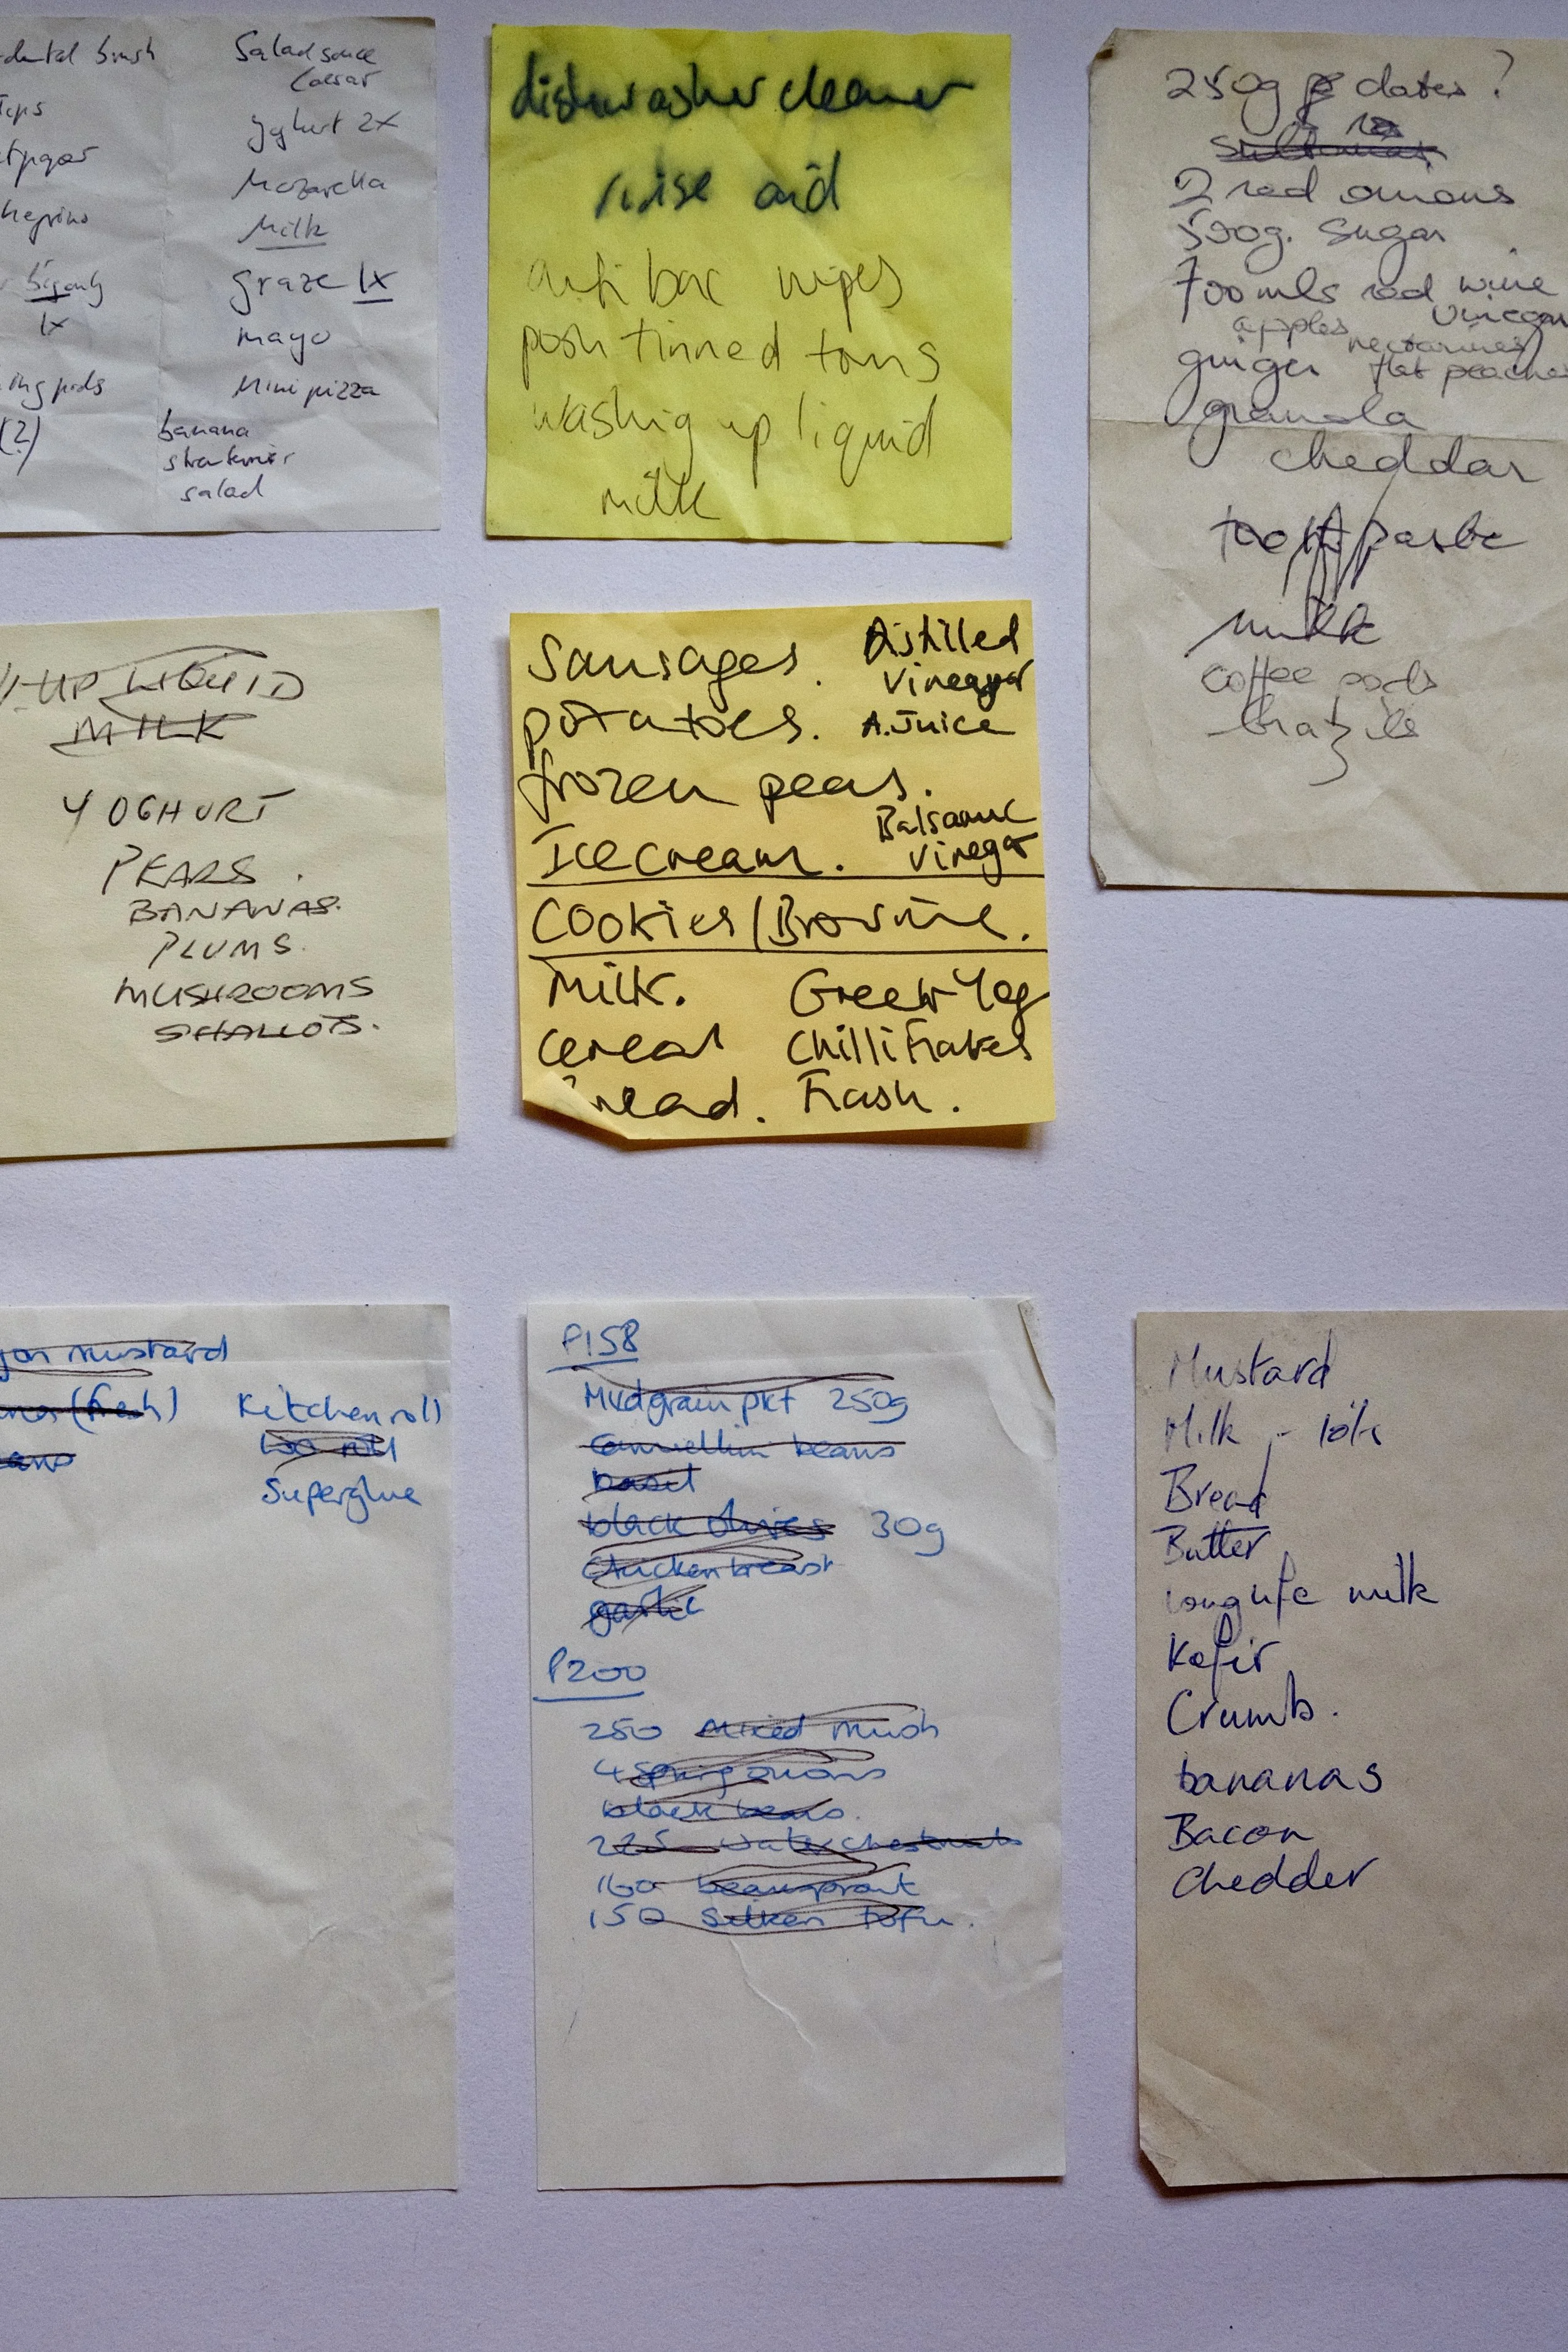 dental brush
Tips
1x
(2)
Salad sauce
Caesar
yghurt 2x
Mozarella
Milk
graze 1x
mayo
Mini pizza
banana
salad
dishwasher cleaner
rinse aid
anti bac wipes
posh tinned toms
washing up liquid
milk
250g dates ?
sultanas
2 red onions
500g. sugar
700mls red wine
vinegar
apples
nectarines
ginger flat peaches
granola
cheddar
toothpaste
milk
coffee pods
brazils
-UP LIQUID
MILK
YOGHURT
PEARS.
BANANAS.
PLUMS.
MUSHROOMS
SHALLOTS.
Sausages.
Distilled
Vinegar
potatoes.
A.Juice
frozen peas.
Icecream.
Balsamic
Vinegar
Cookies/Brownie.
Milk. Greek Yog
cereal Chilli Flakes
read. Flash.
mustard
(fresh) Kitchen roll
loo roll
Superglue
P158
Mxdgrain pkt 250g
Cannellini beans
basil
black olives 30g
Chicken breast
garlic
P200
250 Mixed mush
4 Spring onions
black beans.
225 water chestnuts
160 beansprout
150 Silken tofu.
Mustard
Milk - lots
Bread
Butter
long life milk
Kefir
Crumb.
bananas
Bacon
Chedder